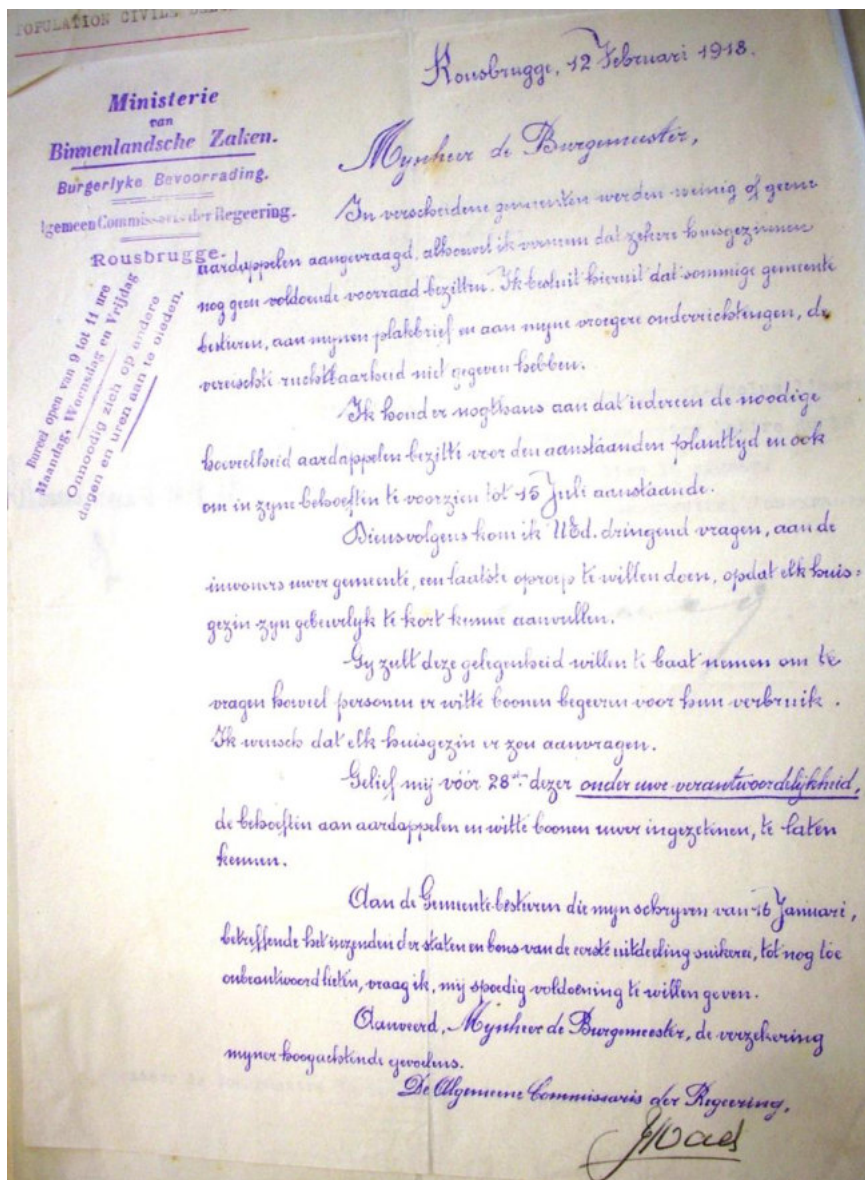 POPULATION CIVILE
Rousbrugge, 12 Februari 1918.
Ministerie
van
Binnenlandsche Zaken.
Burgerlyke Bevoorrading.
lgemeen Commissaris der Regeering.
Rousbrugge.
Bureel open van 9 tot 11 ure
Maandag, Woensdag en Vrijdag
Onnoodig zich op andere
dagen en uren aan te bieden.
Mynheer de Burgemeester,
In verscheidene gemeenten werden weinig of geene
aardappelen aangevraagd, alhoewel ik verneem dat zekere huisgezinnen
nog geen voldoende voorraad bezitten. Ik besluit hieruit dat sommige gemeente
besturen, aan mynen plakbrief en aan myne vroegere onderrichtingen, de
vereischte ruchtbaarheid niet gegeven hebben.
Ik houd er nogthans aan dat iedereen de noodige
hoeveelheid aardappelen bezitte voor den aanstaanden planttyd en ook
om in zyne behoeften te voorzien tot 15 Juli aanstaande.
Diensvolgens kom ik UEd. dringend vragen, aan de
inwoners uwer gemeente, een laatste oproep te willen doen, opdat elk huis=
gezin zyn gebeurlyk te kort kunne aanvullen.
Gy zult deze gelegenheid willen te baat nemen om te
vragen hoeveel personen er witte boonen begeeren voor hun verbruik.
Ik wensch dat elk huisgezin er zou aanvragen.
Gelief mij vóór 28sten dezer onder uwe verantwoordelijkheid,
de behoeften aan aardappelen en witte boonen uwer ingezetenen, te laten
kennen.
Aan de Gemeentebesturen die myn schryven van 16 Januari,
betreffende het inzenden der staten en bons van de eerste uitdeeling suikerei, tot nog toe
onbeantwoord lieten, vraag ik, mij spoedig voldoening te willen geven.
Aanveerd, Mynheer de Burgemeester, de verzekering
myner hoogachtende gevoelens.
De Algemeene Commissaris der Regeering,